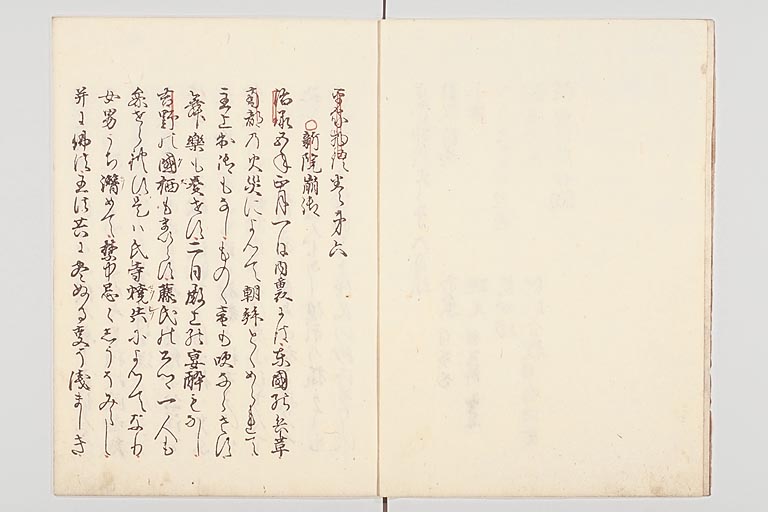 平家物語巻第六
○新院崩御
治承五年正月一日内裏には東國の兵革
南都の火災によつて朝拝とゝめられて
主上出御もなしものゝ音も吹ならさす
舞樂も奏せす二日殿上の宴酔もなし
吉野の國栖もまいらす藤氏の公卿一人も
参せられす是は氏寺焼失によつてなり
女男うち潜めて禁中忌々しうそみえし
并に佛法王法共に盡ぬる事そ淺ましき